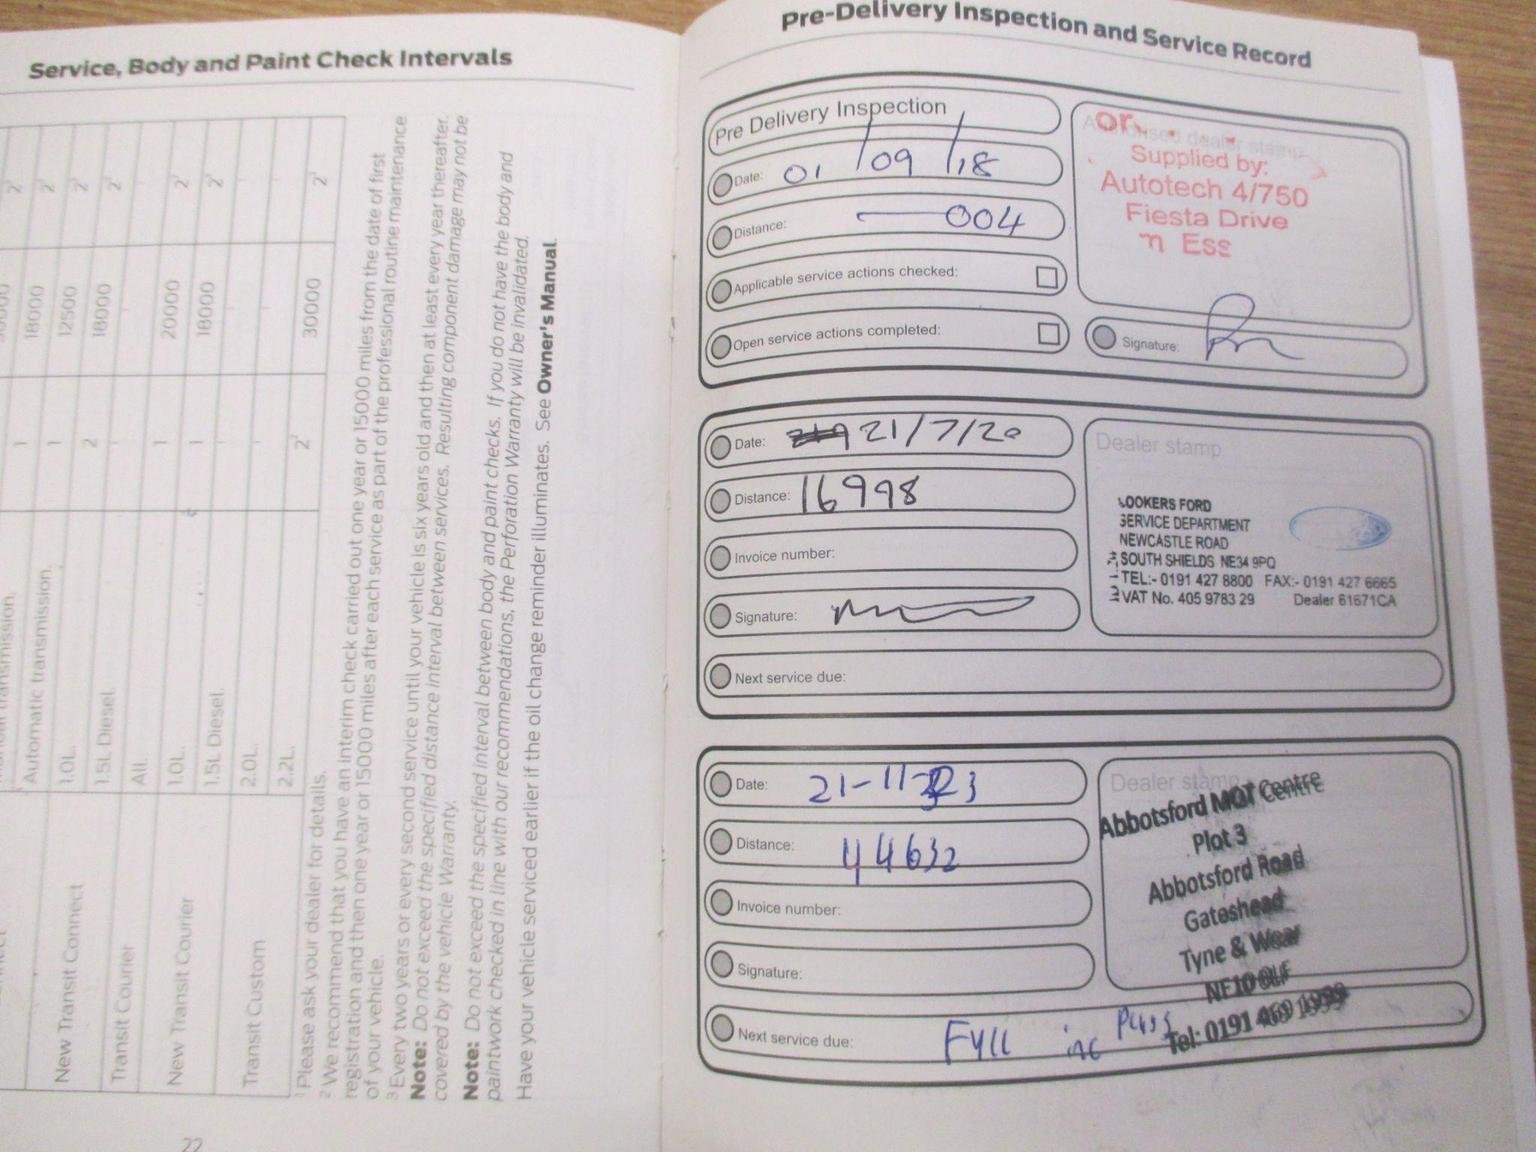 Service, Body and Paint Check Intervals
Automatic transmission.
18000
1
2
New Transit Connect
1.0L.
1
12500
2
1.5L Diesel.
2
18000
2
Transit Courier
All.
-
-
-
New Transit Courier
1.0L.
1
20000
2
1.5L Diesel.
1
18000
2
Transit Custom
2.0L.
-
-
-
2.2L.
2
30000
2
1 Please ask your dealer for details.
2 We recommend that you have an interim check carried out one year or 15000 miles from the date of first
registration and then one year or 15000 miles after each service as part of the professional routine maintenance
of your vehicle.
3 Every two years or every second service until your vehicle is six years old and then at least every year thereafter.
Note: Do not exceed the specified distance interval between services. Resulting component damage may not be
covered by the vehicle Warranty.
Note: Do not exceed the specified interval between body and paint checks. If you do not have the body and
paintwork checked in line with our recommendations, the Perforation Warranty will be invalidated.
Have your vehicle serviced earlier if the oil change reminder illuminates. See Owner's Manual.
22
Pre-Delivery Inspection and Service Record
Pre Delivery Inspection
Date: 01/09/18
Distance: 004
Applicable service actions checked:
Open service actions completed:
Authorised dealer stamp
Supplied by:
Autotech 4/750
Fiesta Drive
Ess
Signature:
Date: 21/7/20
Distance: 16998
Invoice number:
Signature:
Next service due:
Dealer stamp
LOOKERS FORD
SERVICE DEPARTMENT
NEWCASTLE ROAD
SOUTH SHIELDS NE34 9PQ
TEL:- 0191 427 8800 FAX:- 0191 427 6665
VAT No. 405 9783 29 Dealer 61671CA
Date: 21-11-23
Distance: 44632
Invoice number:
Signature:
Next service due: Fyll inc
Dealer stamp
Abbotsford MOT Centre
Plot 3
Abbotsford Road
Gateshead
Tyne & Wear
NE10 0LF
Tel: 0191 469 1999